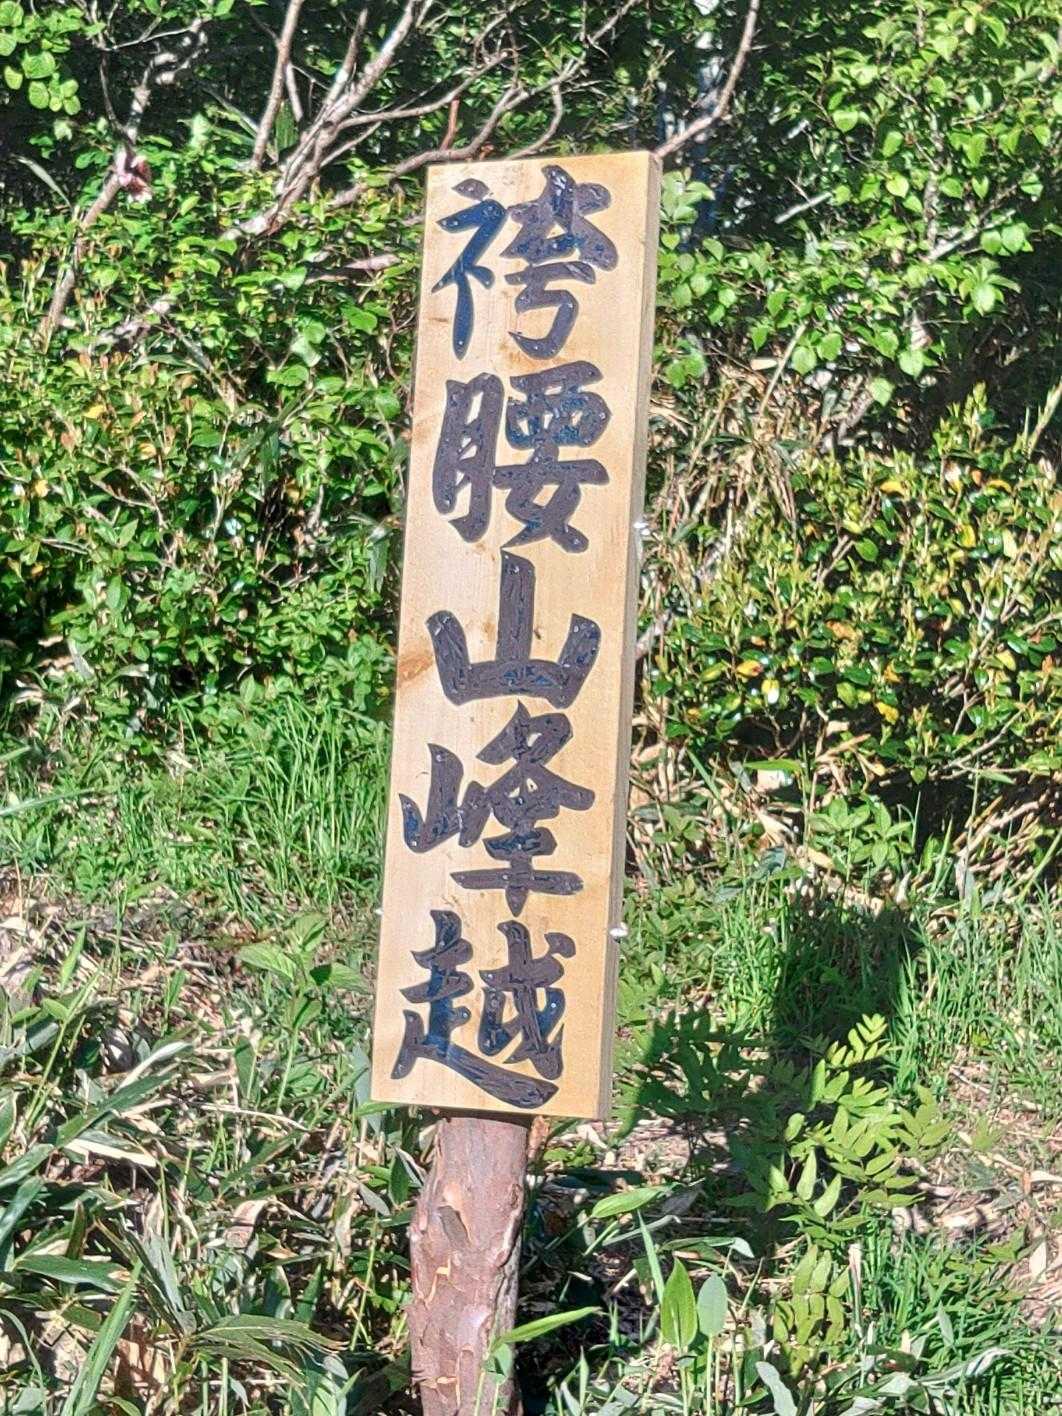 袴腰山峰越